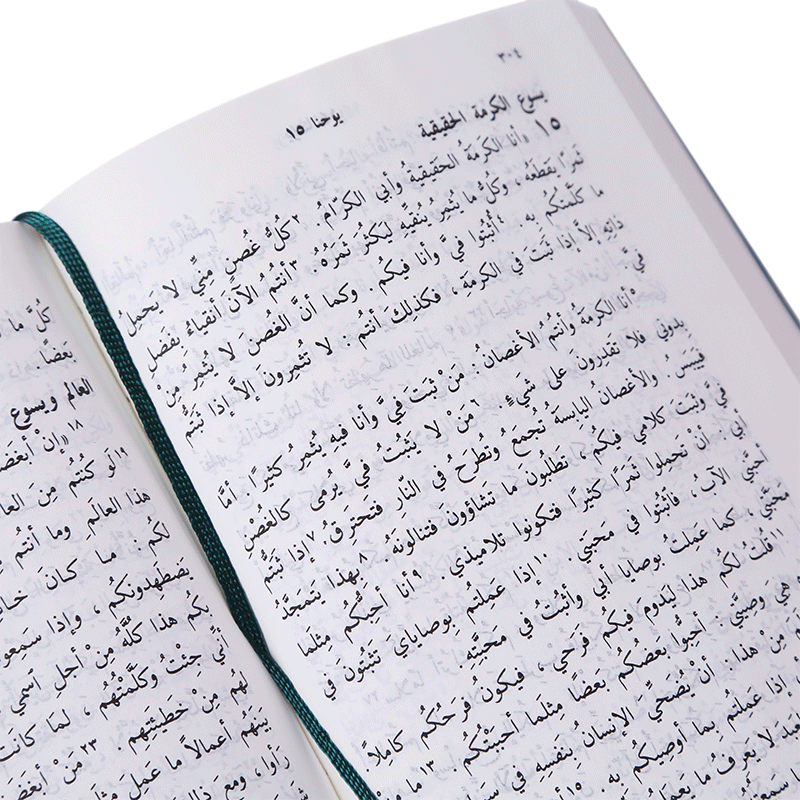 ٣٠٤
يوحنا ١٥
يسوع الكرمة الحقيقية
١٥ «أنا الكَرمَةُ الحَقيقيةُ وأبي الكرّامُ. ٢كُلُّ غُصنٍ مِنِّي لا يَحمِلُ
ثَمرًا يَقطَعُهُ، وكُلُّ ما يُثمِرُ يُنَقّيهِ ليَكثُرَ ثَمَرُهُ. ٣أنتُمُ الآنَ أنقياءُ بِفَضلِ
ما كَلَّمتُكُم بِهِ. ٤أُثبُتوا فيَّ وأنا فيكُم. وكما أنَّ الغُصنَ لا يُثمِرُ مِنْ
ذاتِهِ إلاَّ إذا ثَبَتَ في الكَرمةِ، فكذلِكَ أنتُم: لا تُثمِرونَ إلاَّ إذا ثَبَتُّم
فيَّ.
٥أنا الكرمةُ وأنتُمُ الأغصانُ: مَنْ ثبَتَ فيَّ وأنا فيه يُثمِرُ كثيرًا. أمَّا
بِدوني فلا تَقدِرونَ على شيءٍ. ٦مَنْ لا يَثبُتْ فيَّ يُرمى كالغُصْنِ
فيَيبَسُ. والأغصانُ اليابِسةُ تُجمَعُ وتُطرَحُ في النّارِ فتَحتَرِقُ. ٧إذا ثَبَتُّم
فيَّ وثَبَتَ كلامي فيكُم، تَطلُبونَ ما تَشاؤونَ فتَنالونَهُ. ٨بِهذا يَتَمَجَّدُ
أبي: أنْ تَحمِلوا ثَمَرًا كثيرًا فتكونوا تلاميذي. ٩أنا أُحِبُّكُم مِثلَما
أحبَّني الآبُ، فاثبُتوا في مَحبَّتي. ١٠إذا عَمِلتُم بِوصايايَ تَثبُتونَ في
مَحبَّتي، كما عَمِلتُ بِوصايا أبي وأثبُتُ في مَحبَّتِهِ.
١١قُلتُ لكُم هذا ليَدومَ فيكُم فَرَحي، فيكونَ فَرَحُكُم كامِلاً.
وهيَ وصِيَّتي: أحِبُّوا بَعضُكُم بَعضًا مِثلَما أحبَبْتُكُم. ١٣ما
مِنْ هذا: أنْ يُضَحِّيَ الإنسانُ بِنَفسِهِ في
إذا عَمِلتُم بما أُوصيكُم بِهِ. ١٥
لا يَعرِفُ ما يَعمَلُ
كُلَّ ما
بَعضًا.
العالم ويسوع
١٨ «إنْ أبغَضَ
١٩لَو كُنتُم مِنَ
هذا العالَمِ وما أنتُم
لكُم ما كانَ
يَضطَهِدونَكُم، وإذا
بِكُم هذا كُلَّهُ مِنْ أجلِ اسمي
أنِّي جِئتُ وكَلَّمْتُهُم، لمَا كانَت
لهُم مِنْ خَطيئَتِهِم. ٢٣مَنْ
بَينَهُم أعمالاً ما عَمِلَ
رأوا، ومع